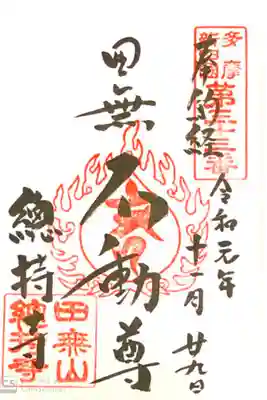 多摩
新四国
第三十三番
奉納経
令和元年
十一月廿九日
田無
不動尊
總持寺
田無山
總持寺